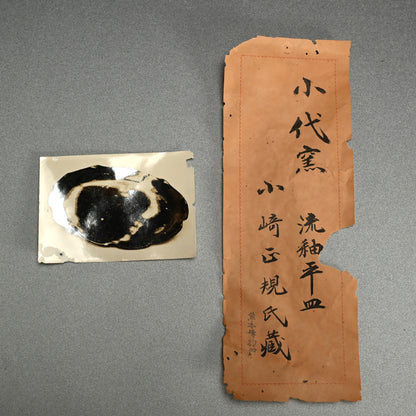 小代窯 流釉平皿
小崎正規氏藏